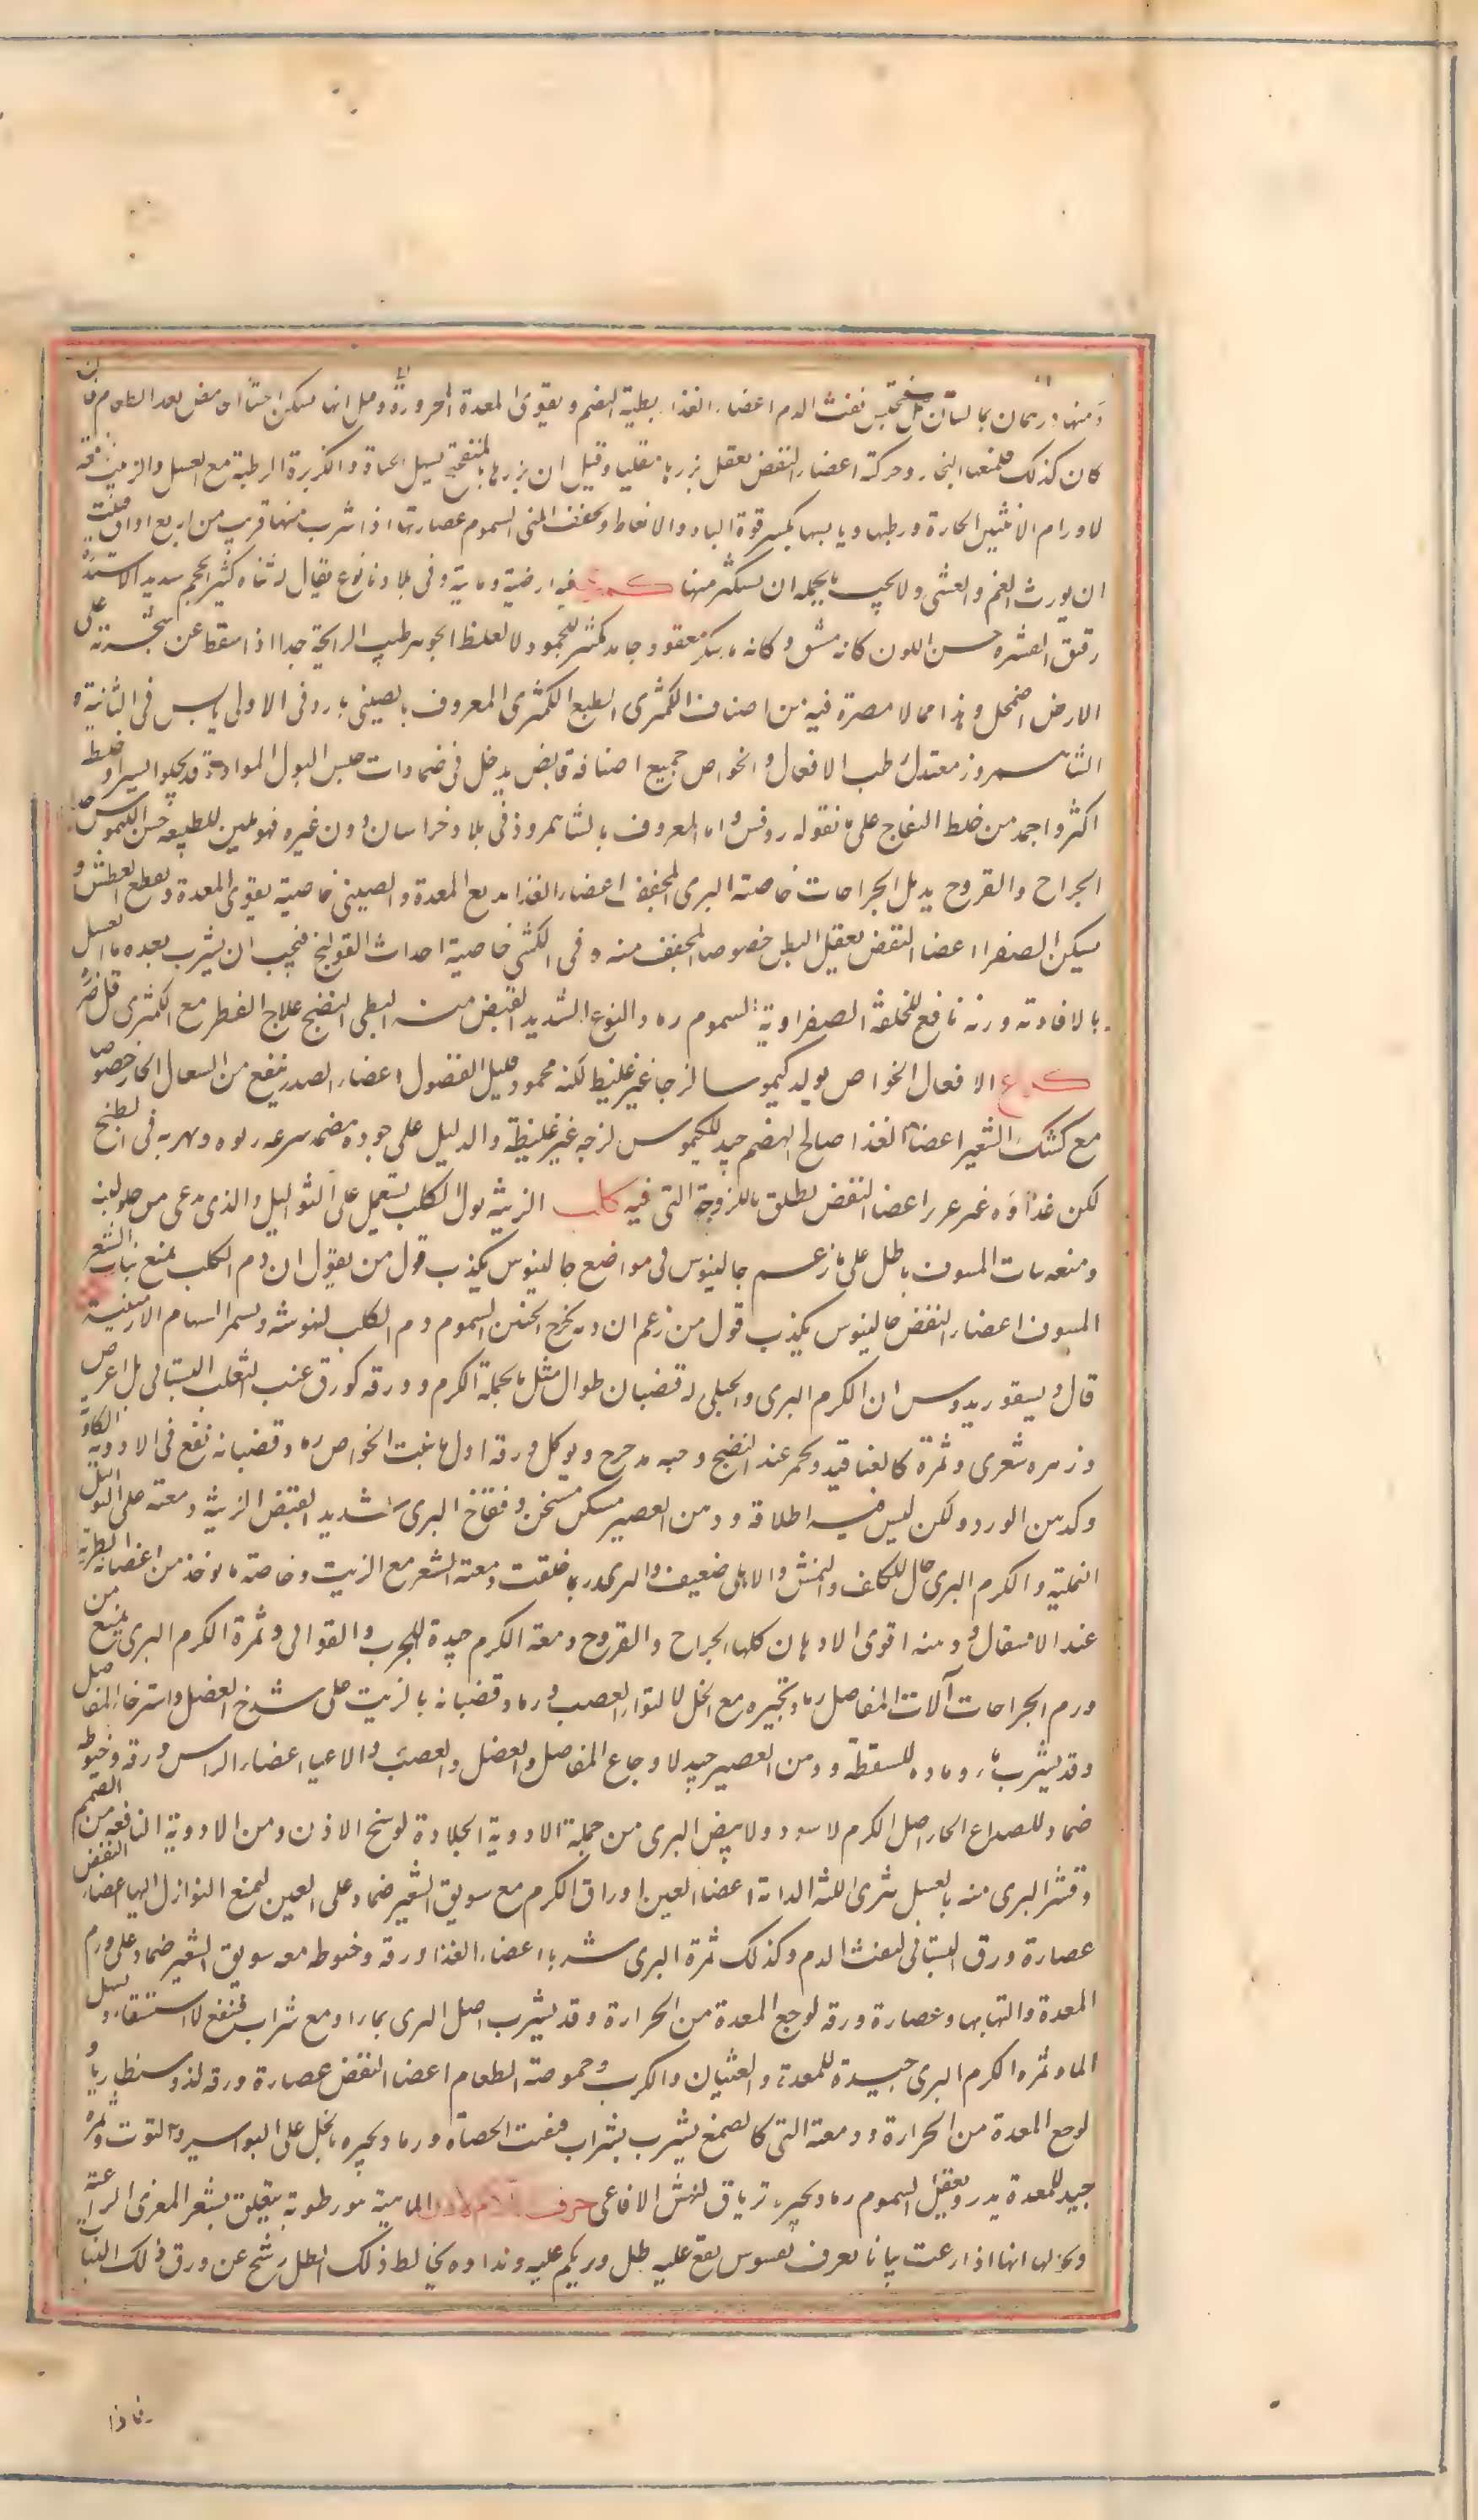 ومنه درهمان بماء لسان الحمل فيحبس نفث الدم اعضاء الغذاء بطيئة الهضم ويقوى المعدة المحرورة وقيل انها تسكن الجشا الحامض بعد الطعام فان
كان كذلك فلمنعها البخار وحركته اعضاء النفض يعقل بزرها مقليا وقيل ان بزرها بالمنفختج يسهل الحياة والكزبرة الرطبة مع العسل والزيت نافعة
لاورام الانثيين الحارة ورطبها ويابسها يكسر قوة الباه والانعاظ ويجفف المنى السموم عصارتها اذا شرب منها قريب من اربع اواق قتلت
ان يورث الغم والغشى ولا يجب بالجملة ان يستكثر منها كمثرى فيه ارضية ومائية وفى بلادنا نوع يقال له شاه كثير الحجم شديد الاستدارة
رقيق القشرة حسن اللون كانه مشف وكانه ماء سكر معقود جامد تكسر للجمود لا لغلظ الجوهر طيب الرايحة جدا اذا سقط عن شجرته على
الارض اضمحل وهذا مما لا مضرة فيه من اصناف الكمثرى الطبع الكمثرى المعروف بالصينى بارد فى الاولى يابس فى الثانية و
الشاهمروز معتدل رطب الافعال والخواص جميع اصنافه قابض يدخل فى ضمادات حبس البول المواد وقد يجلو اليسير وخلطه
اكثر واحمد من خلط التفاح على ما نقوله روفس واما المعروف بالشاهمروذ فى بلاد خراسان دون غيره فهو ملين للطبيعة حسن الكيموس
الجراح والقروح يدمل الجراحات خاصته البرى المجفف اعضاء الغذا يدبغ المعدة والصينى خاصية يقوى المعدة ويقطع العطش و
يسكن الصفرا اعضا النفض يعقل البطن خصوصا المجفف منه وفى الكمثرى خاصية احداث القولنج فيجب ان يشرب بعده ماء العسل
بالافاوية وربه نافع للخلفة الصفراوية السموم رماد النوع الشديد القبض منه البطى النضج علاج الفطر مع الكمثرى قل ضره
كرع الافعال الخواص يولد كيموسا لزجا غير غليظ لكنه محمود قليل الفضول اعضاء الصدر ينفع من السعال الحار خصوصا
مع كشك الشعير اعضا الغذا صالح الهضم جيد للكيموس لزجه غير غليظة والدليل على جودة هضمه سرعة ربوه وتهريه فى الطبخ
لكن غذاؤه غير غزير اعضا النفض يطلق باللزوجة التى فيه كلب الزينة بول الكلب يستعمل على الثواليل والذى يدعى من حلو لبنه
ومنعه نبات المسوف باطل على ما زعم جالينوس فى مواضع جالينوس يكذب قول من يقول ان دم الكلب يمنع نبات الشعر
المسوف اعضاء النفض جالينوس يكذب قول من زعم ان دمه يخرج الجنين السموم دم الكلب لنهوشه ولسم السهام الارمنية
قال ديسقوريدوس ان الكرم البرى والجبلى له قضبان طوال مثل ما يحمله الكرم وورقه كورق عنب الثعلب البستانى بل اعرض
وزهره شعرى وثمرة كالعناقيد ويحمر عند النضج وحبه مدحرج ويوكل ورقه اول ما ينبت الخواص رماد قضبانه نفع فى الادوية الكاوية
وكدهن الورد ولكن ليس فيه اطلاقه ودهن العصير مسكن مسخن وفقاخ البرى شديد القبض الزينة دمعته على الثواليل
النملية والكرم البرى جال للكلف والنمش والابلى ضعيف والبرى ربما حلقت دمعته الشعر مع الزيت وخاصة ما يوخذ من اغصانه الطرية
عند الاشتعال ودهنه اقوى الادهان كلها الجراح والقروح دمعة الكرم جيدة للجرب والقوابى وثمرة الكرم البرى يمنع من
ورم الجراحات آلات المفاصل رماد ثجيره مع الخل لالتواء العصب ورماد قضبانه بالزيت على شدخ العضل واسترخاء المفاصل
وقد يشرب ماء رماده للسقطة ودهن العصير جيد لاوجاع المفاصل والعضل والعصب والاعياء اعضاء الراس ورقه وخيوطه
ضماد للصداع الحار اصل الكرم الاسود والابيض البرى من جملة الادوية الجلادة لوسخ الاذن ومن الادوية النافعة من الصمم
وقشر البرى منه بالعسل يبرى اللثة الدامية اعضا العين اوراق الكرم مع سويق الشعير ضماد على العين ليمنع النوازل اليها اعضاء النفض
عصارة ورق البستانى لنفث الدم وكذلك ثمرة البرى شربا اعضاء الغذا ورقه وخيوطه معه سويق الشعير ضماد على ورم
المعدة والتهابها وعصارة ورقه لوجع المعدة من الحرارة وقد يشرب اصل البرى بماء او مع شراب فينفع الاستسقاء ويسهل
الماء وثمره الكرم البرى جيدة للمعدة والغثيان والكرب وحموضة الطعام اعضا النفض عصارة ورقه لذوسنطاريا و
لوجع المعدة من الحرارة ودمعته التى كالصمغ يشرب بشراب فيفتت الحصاة ورماد ثجيره بالخل على البواسير والتوت وثمره
جيد للمعدة يدر ويعقل السموم رماد ثجيره ترياق لنهش الافاعى حرف اللام لاذن الماهية هو رطوبة يتعلق بشعر المعزى الراعية
ولحاها انها اذا رعت نباتا يعرف بقسوس يقع عليه طل ويركم عليه ونداوه يخالط ذلك الطل رشح عن ورق ذلك النبات
فاذا